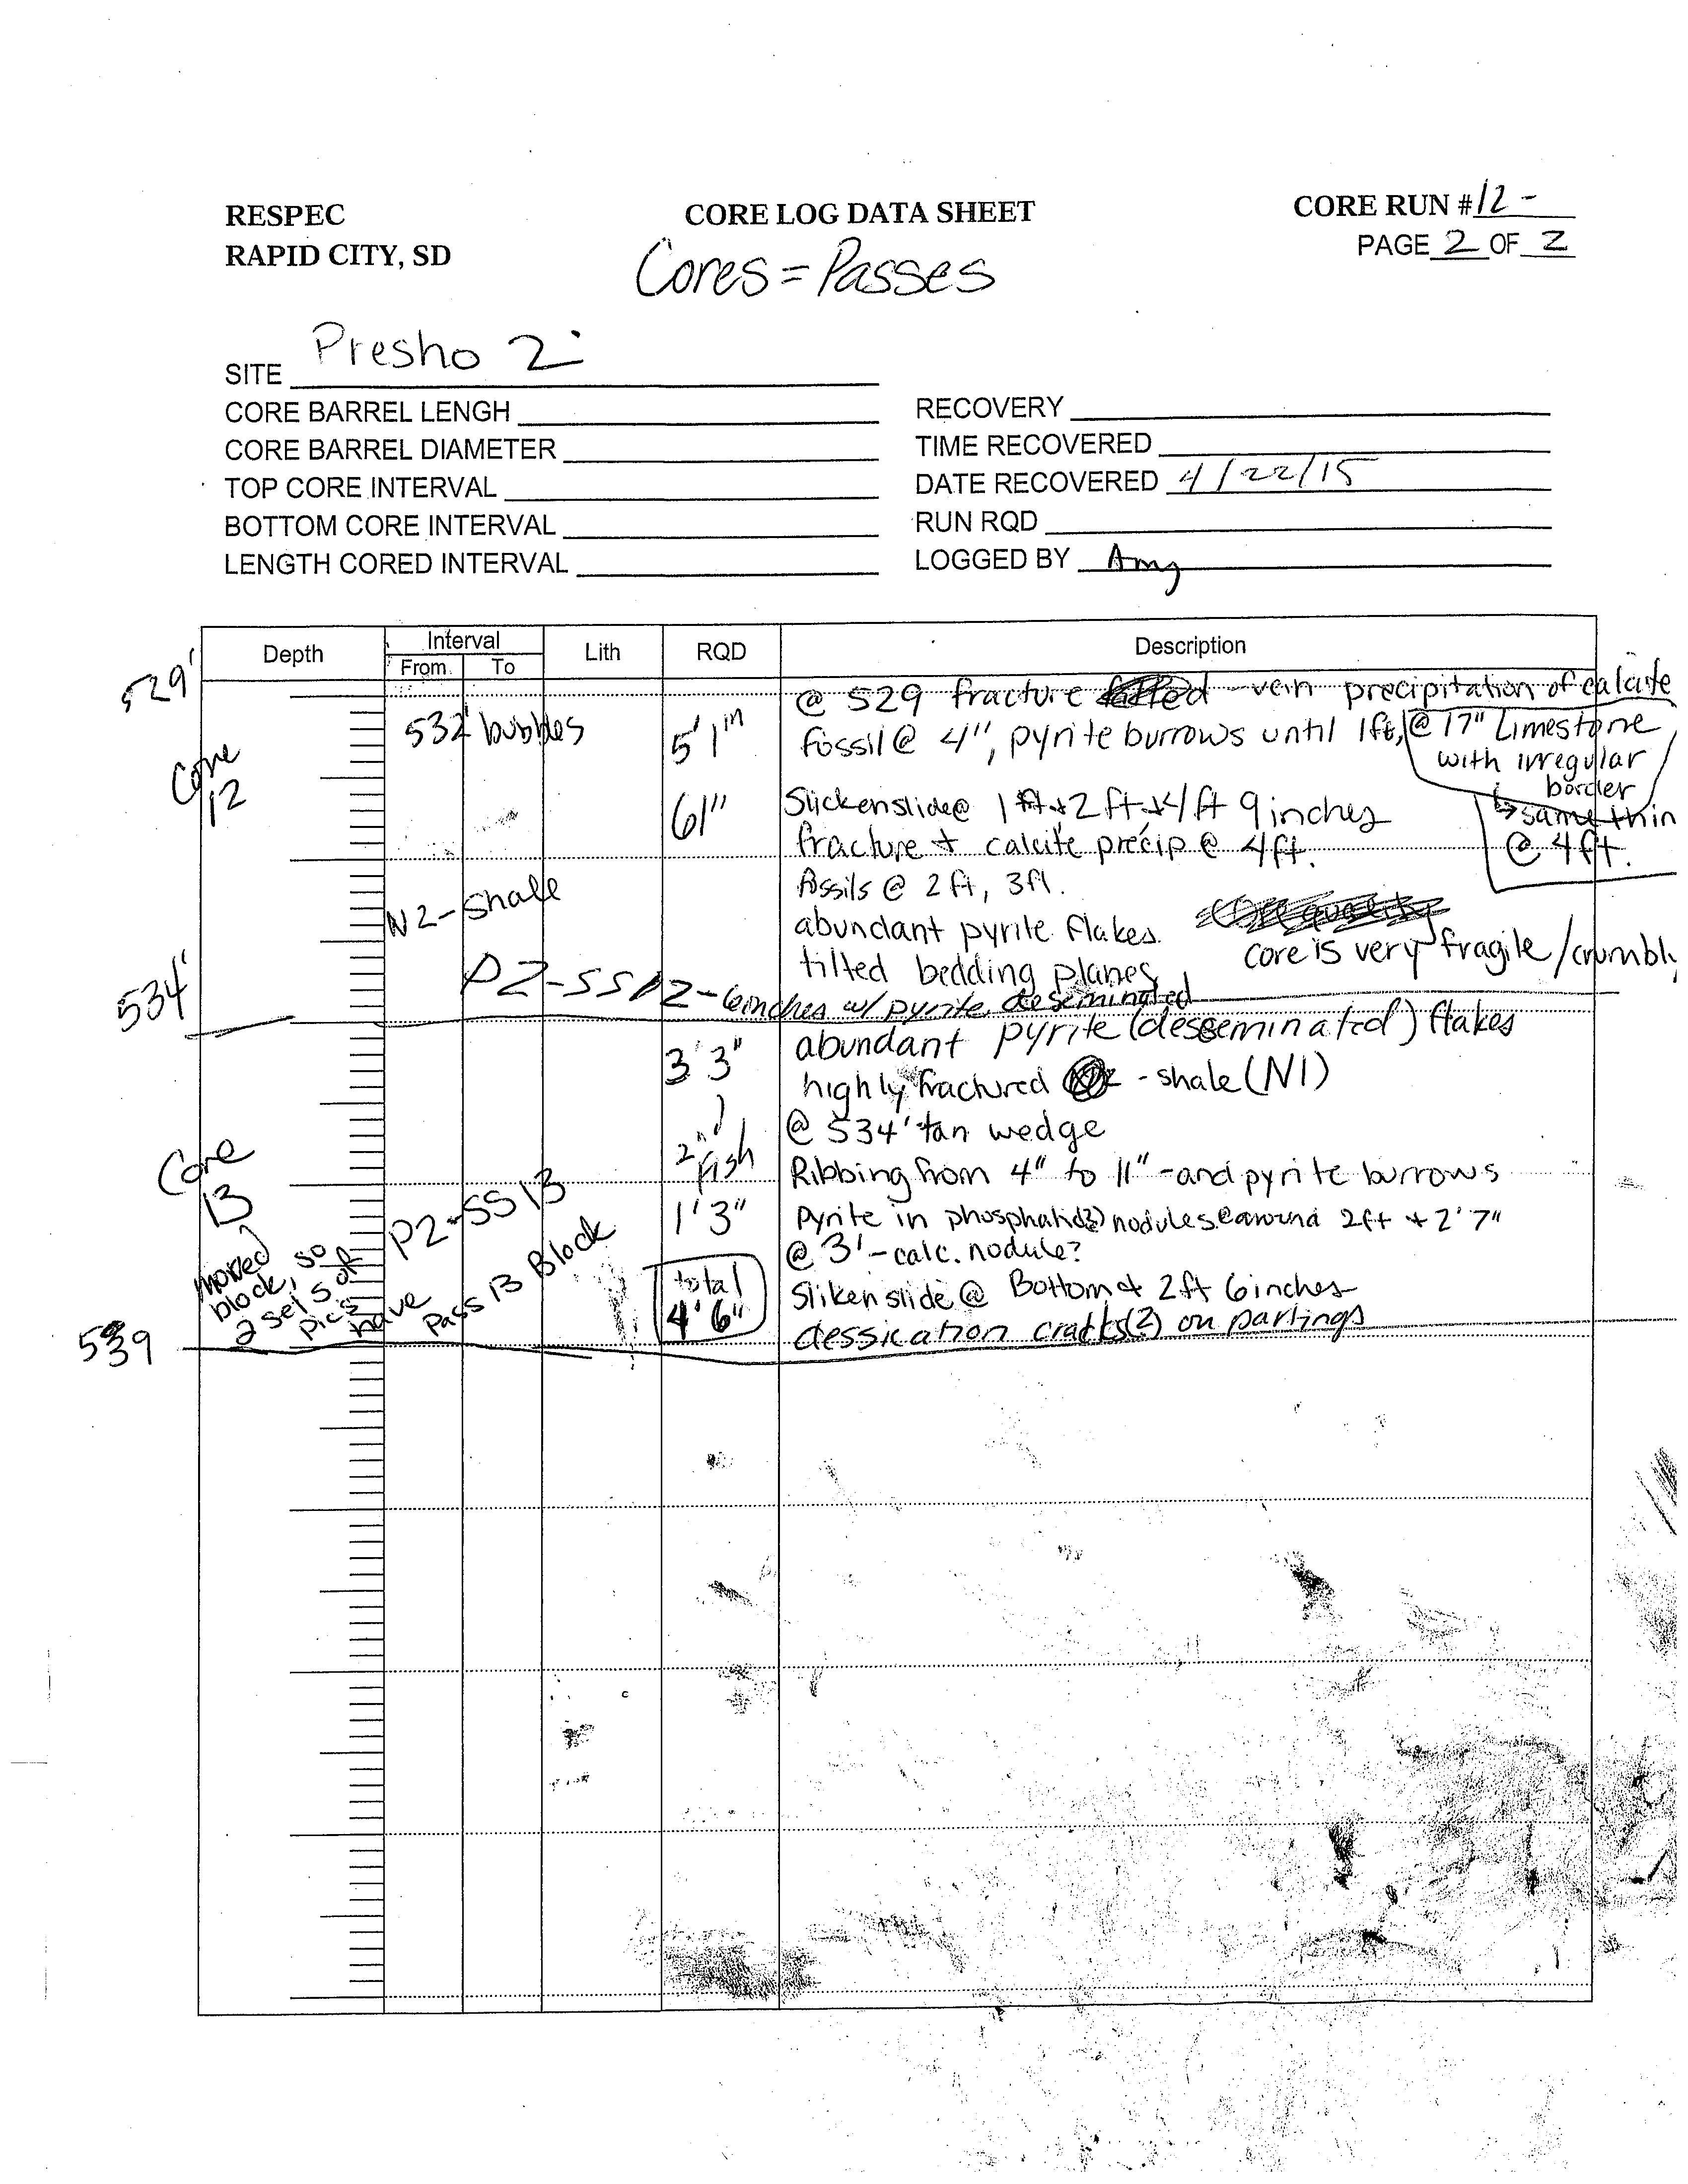 RESPEC
CORE LOG DATA SHEET
CORE RUN #12-
RAPID CITY, SD
PAGE 2 OF 2
Cores = Passes
SITE Presho 2
CORE BARREL LENGH
RECOVERY
CORE BARREL DIAMETER
TIME RECOVERED
TOP CORE INTERVAL
DATE RECOVERED 4/22/15
BOTTOM CORE INTERVAL
RUN RQD
LENGTH CORED INTERVAL
LOGGED BY Amy
Depth
Interval
From
To
Lith
RQD
Description
529'
Core
12
532' bubbles
5' 1in
61"
@ 529 fracture vein precipitation of calcite
fossil @ 4", pyrite burrows until 1ft, @ 17" Limestone
with irregular
border
same thin
@ 4ft.
Slickenslide @ 1ft + 2ft + 4ft 9 inches
fracture + calcite precip @ 4ft.
fossils @ 2ft, 3ft.
N2-Shale
abundant pyrite flakes.
core is very fragile/crumbly
tilted bedding planes
P2-SS12-6inches w/ pyrite deseminated
534'
3' 3"
abundant pyrite (desseminated) flakes
highly fractured - shale (N1)
@ 534' tan wedge
2" fish
Ribbing from 4" to 11" - and pyrite burrows
Core
13
P2-SS13
1' 3"
Pyrite in phosphatic(?) nodules @ around 2ft + 2' 7"
@ 3' - calc. nodule?
moved
block, so
2 sets of
pics
have
Pass 13 Block
total
4' 6"
Slikenslide @ Bottom + 2ft 6inches
dessication cracks(?) on partings
539